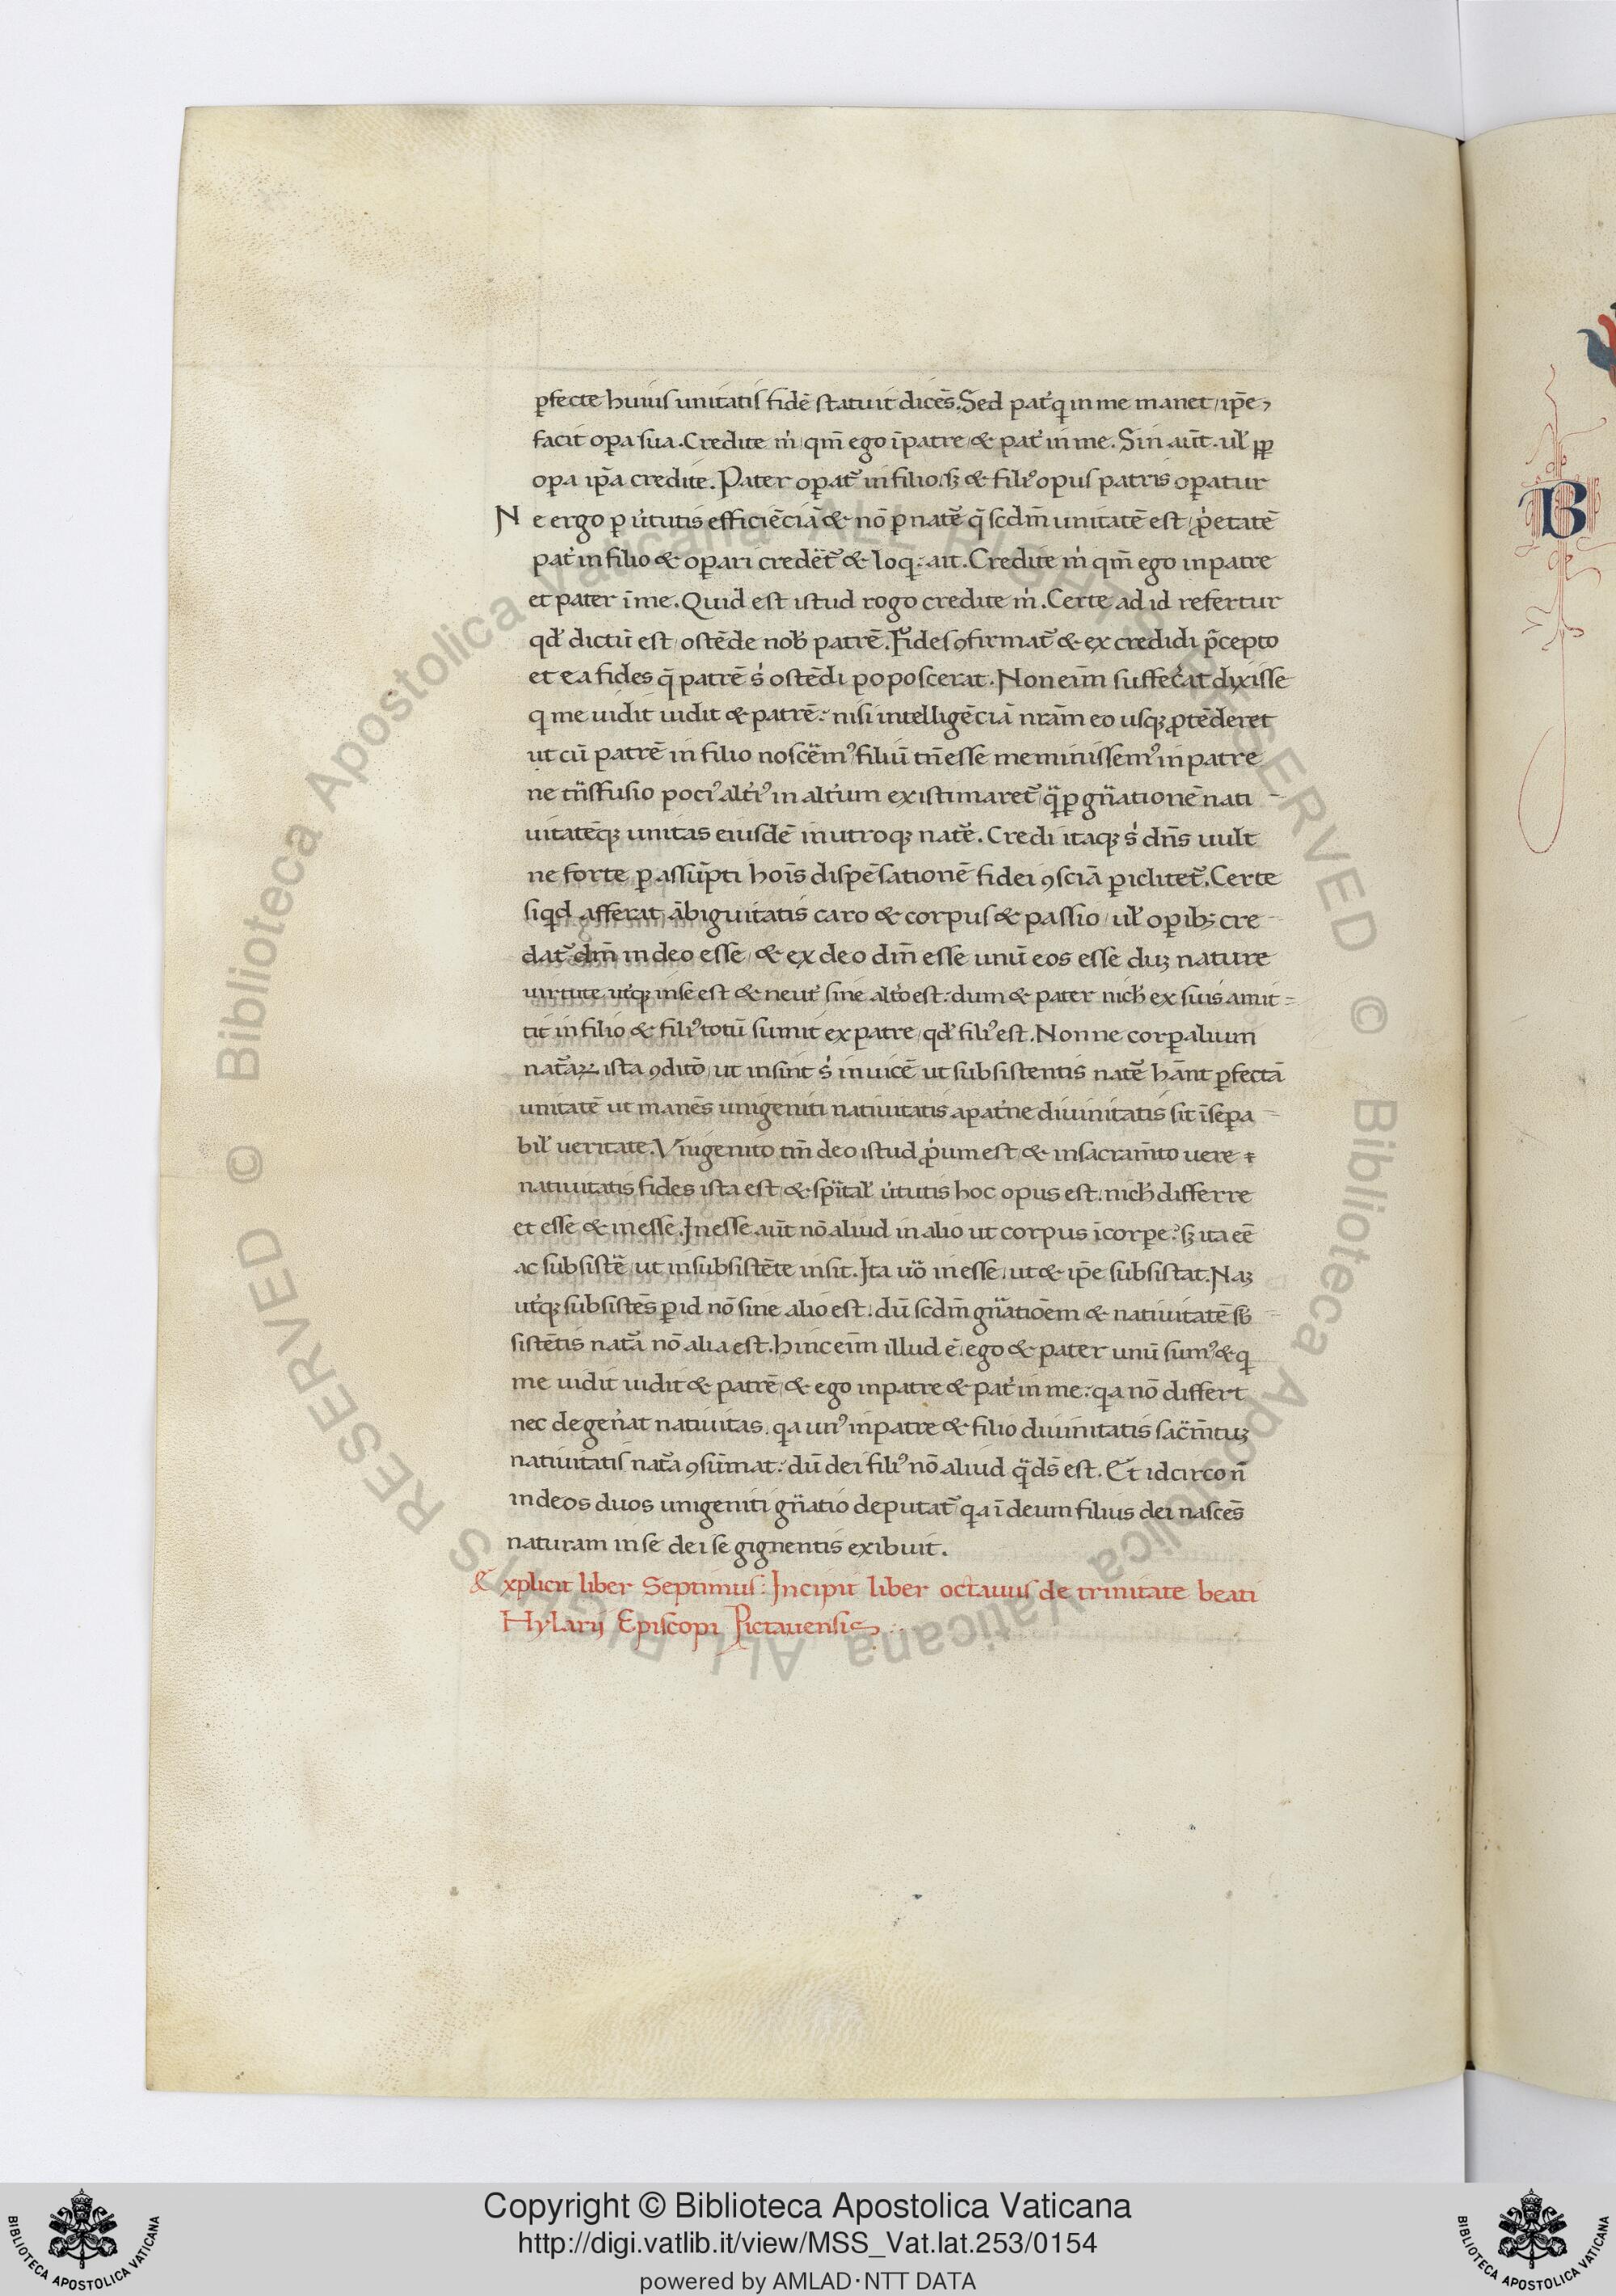 ꝑfecte huius unitatis fidē statuit dicēs. Sed pat̓ qi in me manet, ip̄e
facit oꝑa sua. Credite m̓ qm̄ ego ī patre, & pat̓ in me. Sin aūt. ul̓ ꝓꝑ
oꝑa ip̄a credite. Pater oꝑat᷑ in filio. sꝫ & fili᷒ opus patris oꝑatur
Ne ergo ꝑ u̓tutis efficiēciā & nō ꝑ natē᷑ q̄ scdm̄ unitatē est, ꝓ̓etatē
pat̓ in filio & oꝑari credēt᷑ & loqi: ait. Credite m̓ qm̄ ego in patre
et pater ī me. Quid est istud rogo credite m̓. Certe ad id refertur
qd̓ dictū est, ostēde nob̓ patrē. Fides ꝯfirmat᷑ & ex credidi p̄cepto
et ea fides q̄ patrē s̓ ostēdi poposcerat. Non eim̄ suffec̓at dixisse
qi me uidit uidit & patrē: nisi intelligēciā nrām eo usqꝫ ꝓtēderet
ut cū patrē in filio noscēm᷒ filiū tn̄ esse meminissem᷒ in patre
ne tn̄sfusio poci᷒ alt̓i᷒ in alt̓ium existimaret᷑ qͣꝑ gn̄ationē nati
uitatēqꝫ unitas eiusdē in utroqꝫ natē᷑. Credi itaqꝫ s̓ dn̄s uult
ne forte ꝑ assūpti hoīs dispēsationē fidei ꝯsciā ꝑiclitet᷑. Certe
siqid afferat ābiguitatis caro & corpus & passio, ul̓ oꝑibꝫ cre
dat᷑ dm̄ in deo esse, & ex deo dm̄ esse unū eos esse duꝫ nature
uirtute ut̓qꝫ in se est & neut̓ sine alt̓o est: dum & pater nich̓ ex suis amit
tit in filio & fili᷒ totū sumit ex patre, qd̓ fili᷒ est. Non ne corꝑalium
natāꝝ ista ꝯditō, ut in sint s̓ inuicē ut subsistentis natē᷑ hānt ꝑfectā
unitatē ut manēs unigeniti natiuitatis a pat̓ne diuinitatis sit īseꝑa
bil̓ ueritate. Vnigenito tm̄ deo istud ꝓ̓um est & in sacram̄to uere
natiuitatis fides ista est, & spīital̓ u̓tutis hoc opus est. nich̓ differre
et esse & in esse. Inesse aūt nō aliud in alio ut corpus ī corꝑe: sꝫ ita eē
ac subsistē, ut in subsistēte insit. Ita uo̓ in esse, ut & ip̄e subsistat. Naꝫ
ut̓qꝫ subsistēs ꝑ id nō sine alio est. dū scdm̄ gn̄atiōem & natiuitatē sb̓
sistētis natā nō alia est. hinc eim̄ illud ē. ego & pater unū sum᷒ & qi
me uidit uidit & patrē, & ego in patre & pat̓ in me: qia nō differt
nec degen̓at natiuitas. qia un᷒ in patre & filio diuinitatis sacm̄tuꝫ
natiuitatis natā ꝯsūmat: dū dei fili᷒ nō aliud qͣ ds̄ est. Et idcirco n̄
in deos duos unigeniti gn̄atio deputat᷑ qia ī deum filius dei nascēs
naturam in se dei se gignentis exibuit.
Explicit liber Septimus: Incipit liber octauus de trinitate beati
Hylarij Episcopi Pictauensis
B
Copyright © Biblioteca Apostolica Vaticana
http://digi.vatlib.it/view/MSS_Vat.lat.253/0154
powered by AMLAD·NTT DATA
BIBLIOTECA APOSTOLICA VATICANA
BIBLIOTECA APOSTOLICA VATICANA
© Biblioteca Apostolica Vaticana ALL RIGHTS RESERVED © Biblioteca Apostolica Vaticana ALL RIGHTS RESERVED